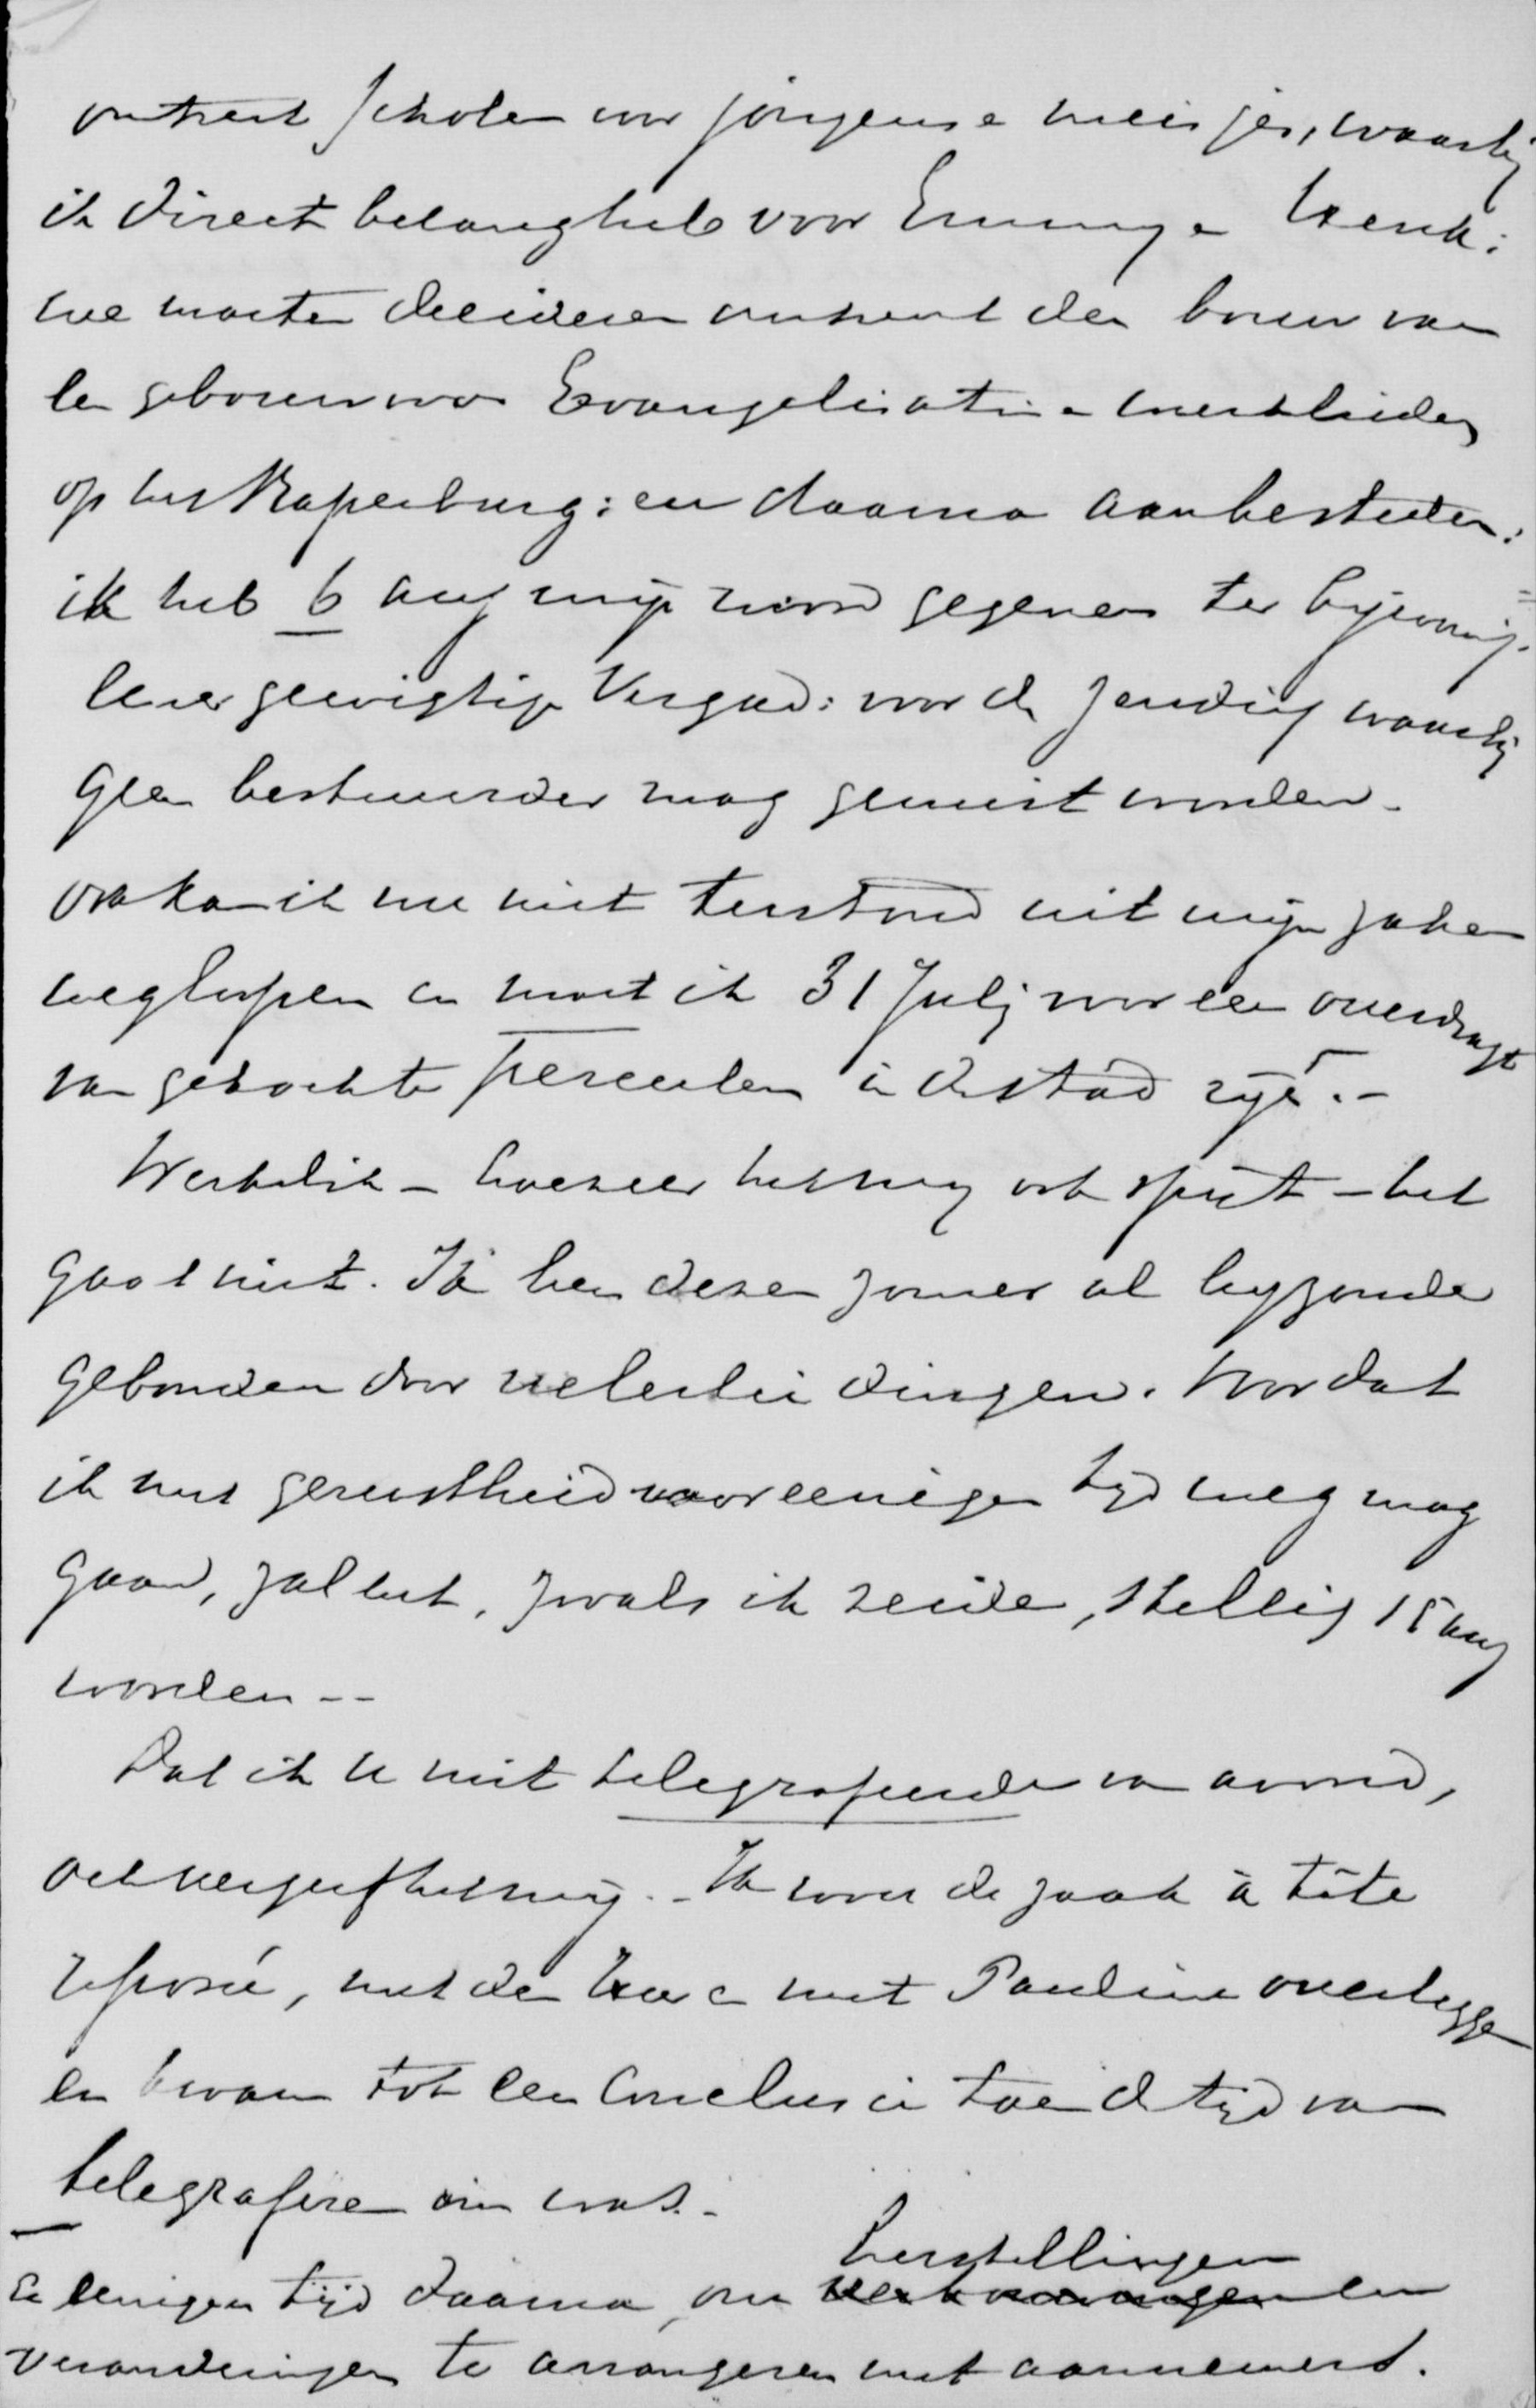 omtrent scholen voor jongens e meisjes, waarbij
ik direct belang heb voor Emmy e Henk:
we moeten decideren omtrent den bouw van
een gebouw voor Evangelisatie e werklieden
op het Rapenburg: en daarna aanbesteden:
ik heb 6 aug mijn woord gegeven ter bijwoning
eener gewigtige Vergad: voor de zending waarbij
geen bestuurder mag gemist worden.
ook kan ik me niet terstond uit mijn zaken
wegloopen en moet ik 31 July voor een overdragt
van gekochte perceelen in de stad zijn.-
Werkelijk - hoezeer het mij ook spijt - het
gaat niet. Ik ben dezen zomer al byzonder
gebonden door velerlei dingen. Voordat
ik met gerustheid voor eenigen tyd weg mag
gaan, zal het, zoals ik zeide, stellig 15 aug
worden --
Dat ik u niet telegrafeerde van avond,
och vergeef het mij. - Ik wou de zaak à tête
reposée, met den Heer e met Pauline overleggen
en kwam tot een conclusie toen de tyd van
telegrafiren om was.-
herstellingen
En eenigen tijd daarna, om en
veranderingen te arrangeren met aannemers.